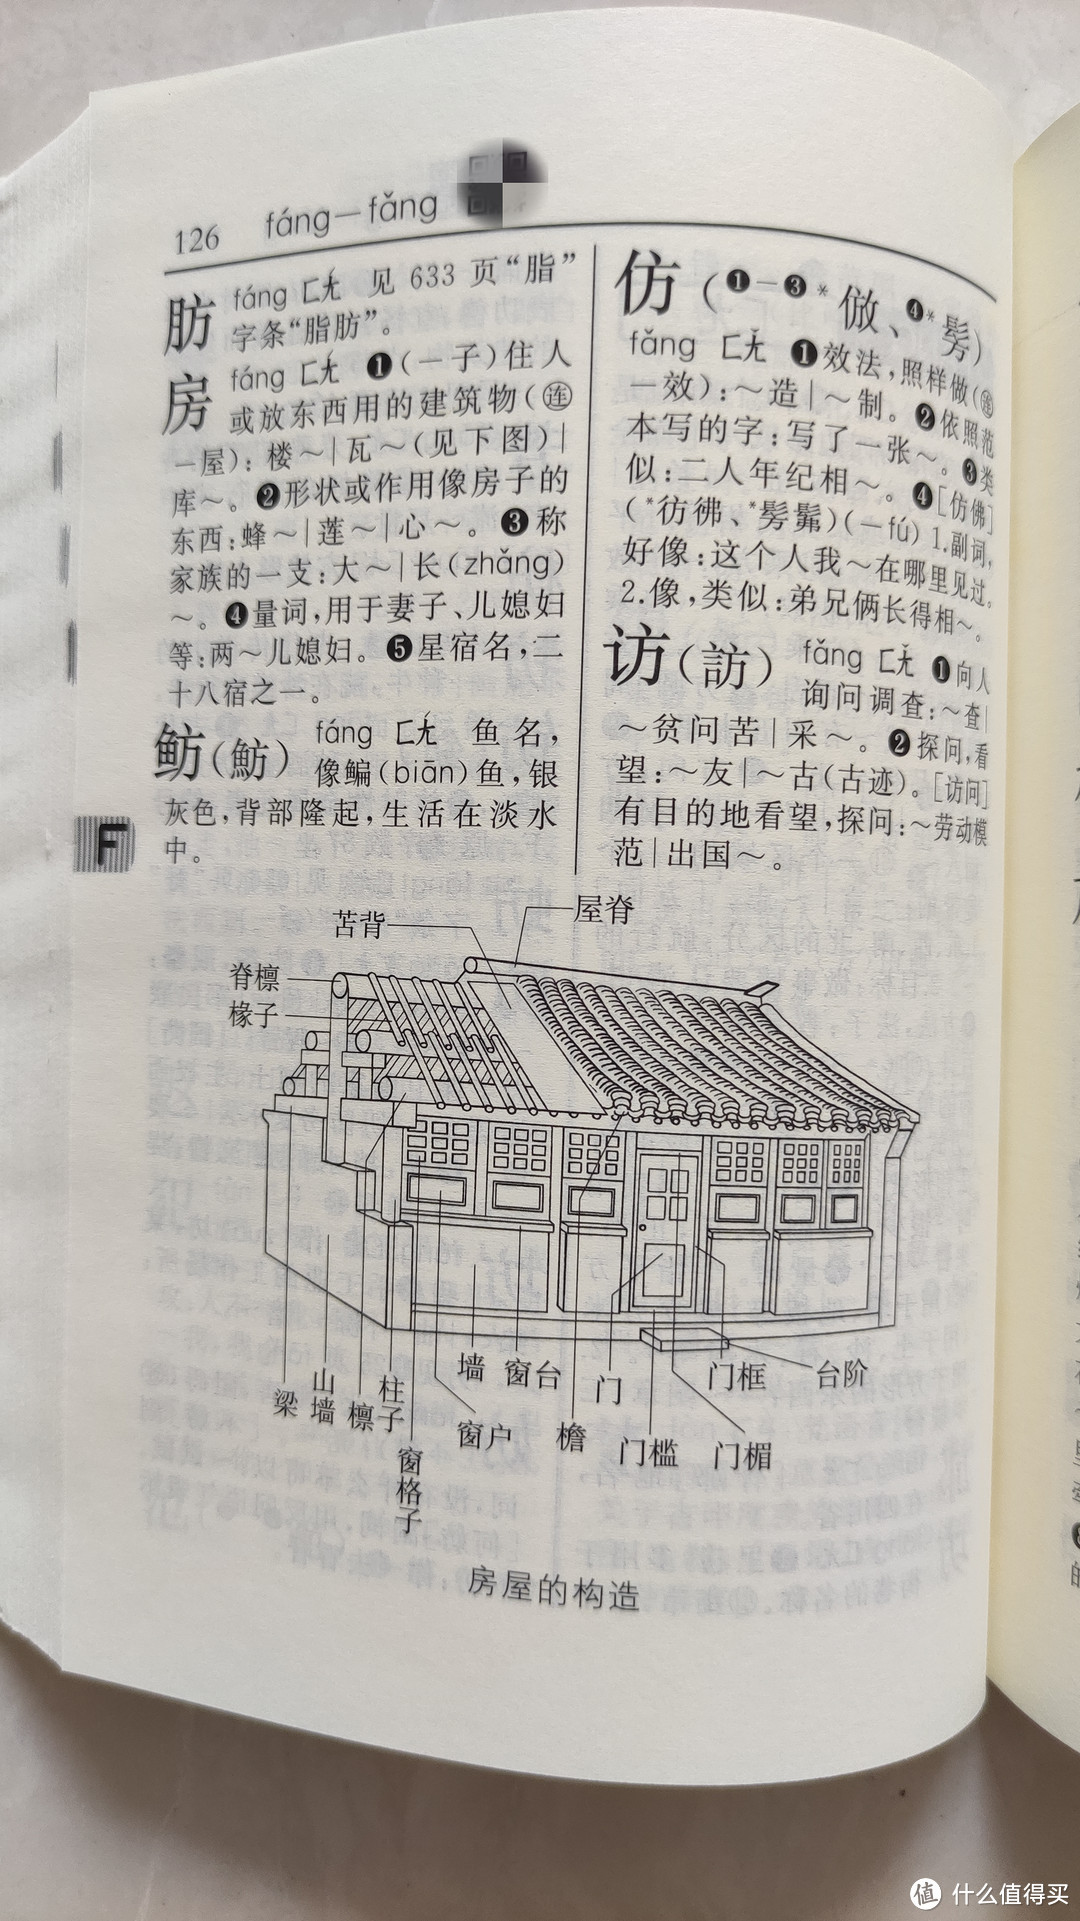 126 fáng—fǎng
肪 fáng ㄈㄤˊ 见 633 页“脂”
字条“脂肪”。
房 fáng ㄈㄤˊ ❶(－子)住人
或放东西用的建筑物(㊣连
－屋)：楼～|瓦～(见下图)|
库～。❷形状或作用像房子的
东西：蜂～|莲～|心～。❸称
家族的一支：大～|长(zhǎng)
～。❹量词，用于妻子、儿媳妇
等：两～儿媳妇。❺星宿名，二
十八宿之一。
鲂(魴) fáng ㄈㄤˊ 鱼名，
像鳊(biān)鱼，银
灰色，背部隆起，生活在淡水
中。
仿(❶－❸*倣、❹*髣)
fǎng ㄈㄤˇ ❶效法，照样做(连
－效)：～造|～制。❷依照范
本写的字：写了一张～。❸类
似：二人年纪相～。❹[仿佛]
(*彷彿、*髣髴)(－fú) 1.副词，
好像：这个人我～在哪里见过。
2.像，类似：弟兄俩长得相～。
访(訪) fǎng ㄈㄤˇ ❶向人
询问调查：～查|
～贫问苦|采～。❷探问，看
望：～友|～古(古迹)。[访问]
有目的地看望，探问：～劳动模
范|出国～。
F
苫背
屋脊
脊檩
椽子
梁
山墙
檩子
柱子
窗格子
墙
窗户
窗台
檐
门
门槛
门框
门楣
台阶
房屋的构造
值 什么值得买